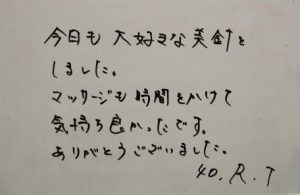 今日も 大好きな美針を
しました。
マッサージも時間をかけて
気持ち良かったです。
ありがとうございました。
40. R. T